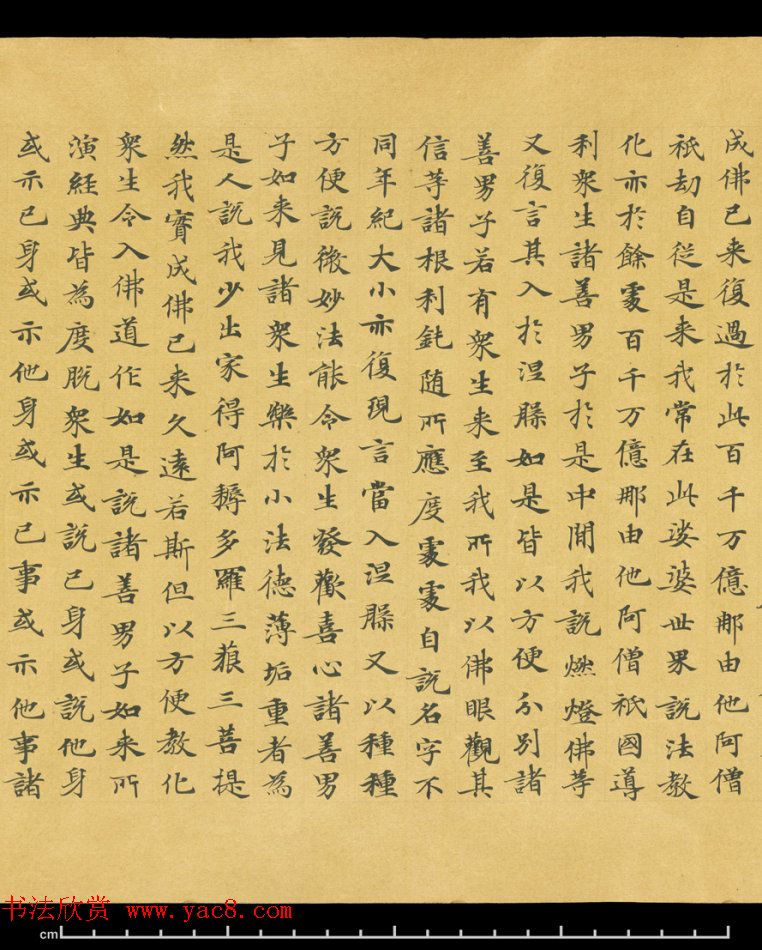 成佛已来復過於此百千万億那由他阿僧
祇劫自從是来我常在此娑婆世界說法教
化亦於餘處百千万億那由他阿僧祇國導
利衆生諸善男子於是中間我說燃燈佛等
又復言其入於涅槃如是皆以方便分別諸
善男子若有衆生来至我所我以佛眼觀其
信等諸根利鈍随所應度處處自說名字不
同年紀大小亦復現言當入涅槃又以種種
方便說微妙法能令衆生發歡喜心諸善男
子如来見諸衆生樂於小法德薄垢重者為
是人說我少出家得阿耨多羅三藐三菩提
然我實成佛已来久遠若斯但以方便教化
衆生令入佛道作如是說諸善男子如来所
演經典皆為度脫衆生或說己身或說他身
或示己身或示他身或示己事或示他事諸
书法欣赏 www.yac8.com
cm